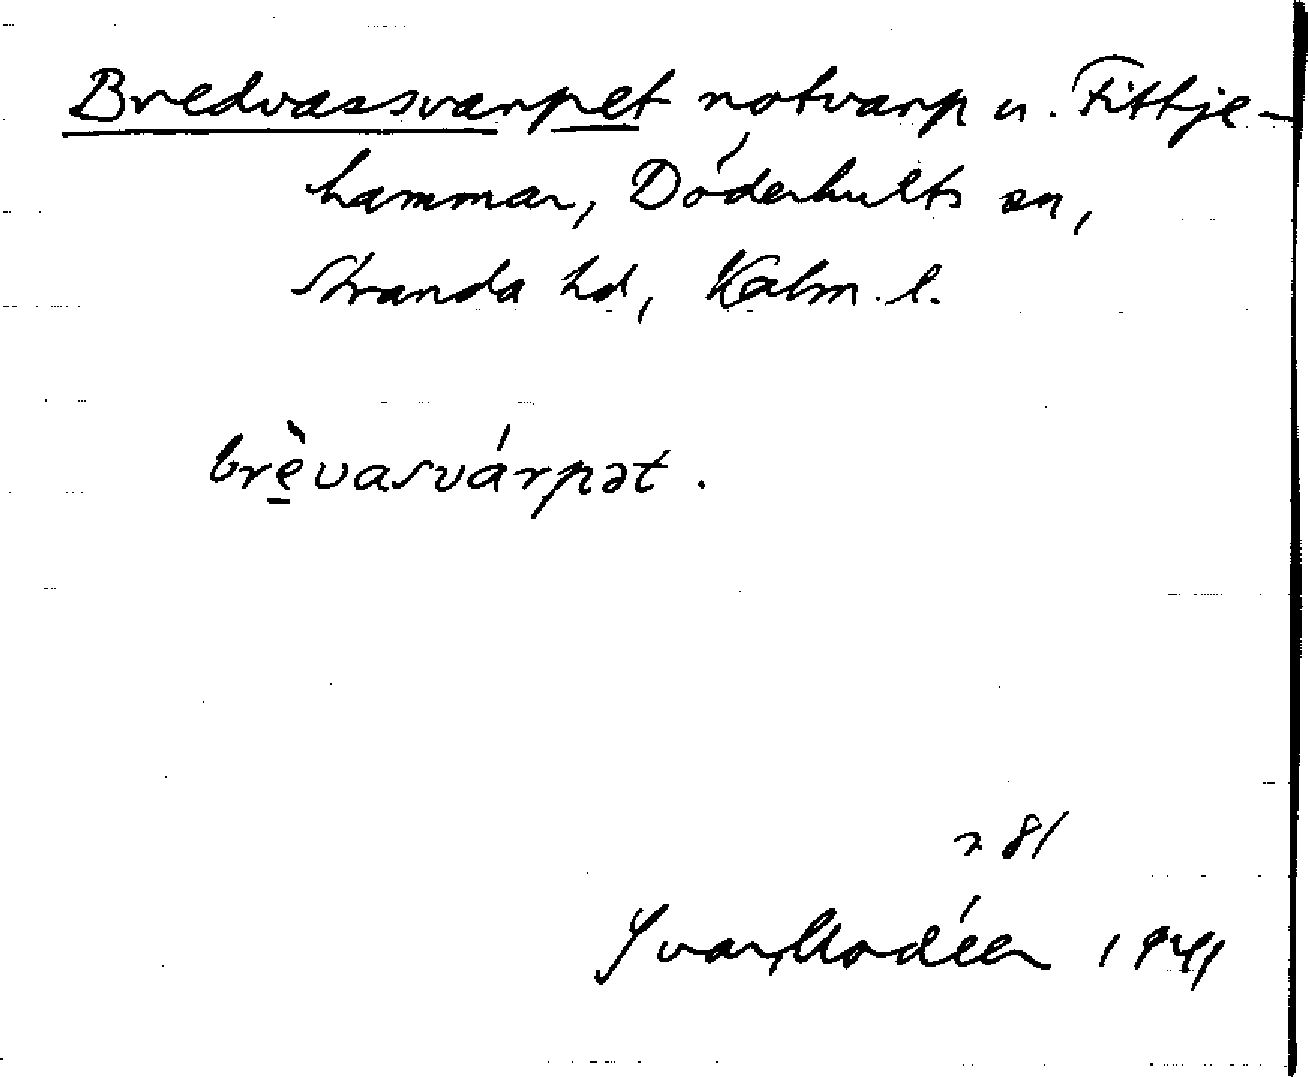 Bredvassvarpet notvarp u. Fittje-
hammar, Döderhults sn,
Stranda hd, Kalm. l.
brè̱vasvárpət.
r 81
Ivar Modéer 1941